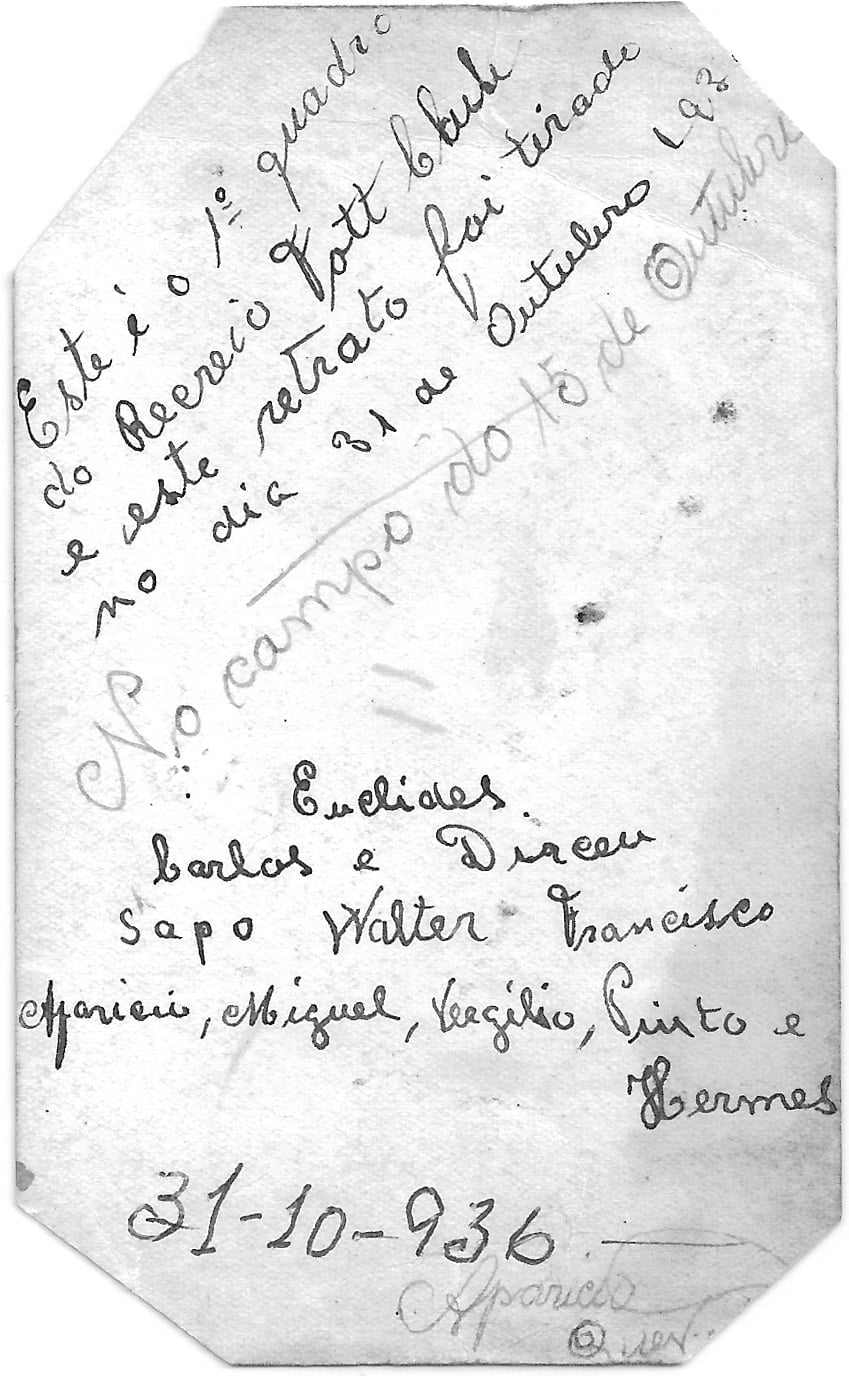 Este é o 1º quadro
do Recreio Fott Club
e este retrato foi tirado
no dia 31 de Outubro 193
No campo do 15 de Outubro
Euclides
Carlos e Dirceu
Sapo Walter Francisco
Aparicio, Miguel, Vergilio, Pinto e
Hermes
31-10-936
Aparicio